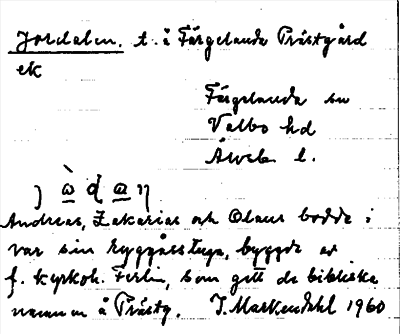 Jordalen. t. å Färgelanda Prästgård
ek
Färgelanda sn
Valbo hd
Älvsb l.
Andreas, Zakarias och Olaus bodde i
var sin ryggåsstuga, byggda av
f. kyrkoh. Ferlin, som gett de bibliska
namnen å Prästg. J. Markendahl 1960